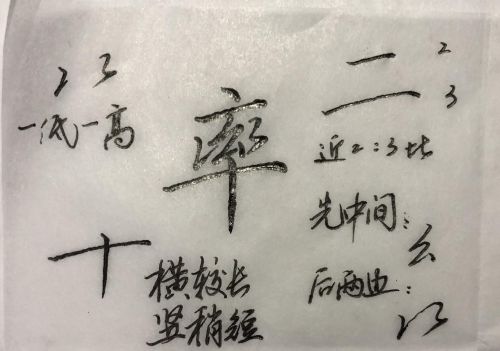 一低一高
率
二
2
3
近2:3比
先中间:
幺
后两边:
十
横较长
竖稍短